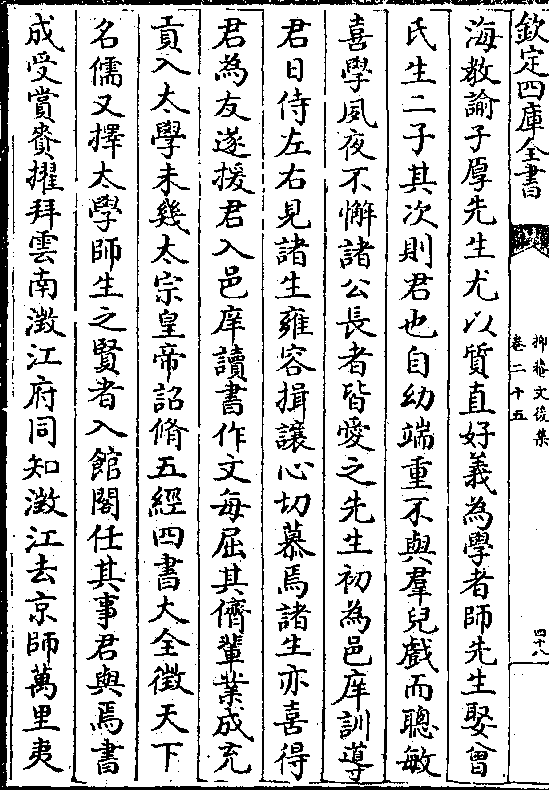 欽定四庫全書
抑菴文後集
卷二十五
四十八
海教諭子厚先生尤以質直好義為學者師先生娶曾
氏生二子其次則君也自幼端重不與羣兒戲而聰敏
喜學夙夜不懈諸公長者皆愛之先生初為邑庠訓導
君日侍左右見諸生雍容揖讓心切慕焉諸生亦喜得
君為友遂援君入邑庠讀書作文每屈其儕輩業成充
貢入太學未幾太宗皇帝詔脩五經四書大全徵天下
名儒又擇太學師生之賢者入館閣任其事君與焉書
成受賞賚擢拜雲南澂江府同知澂江去京師萬里夷